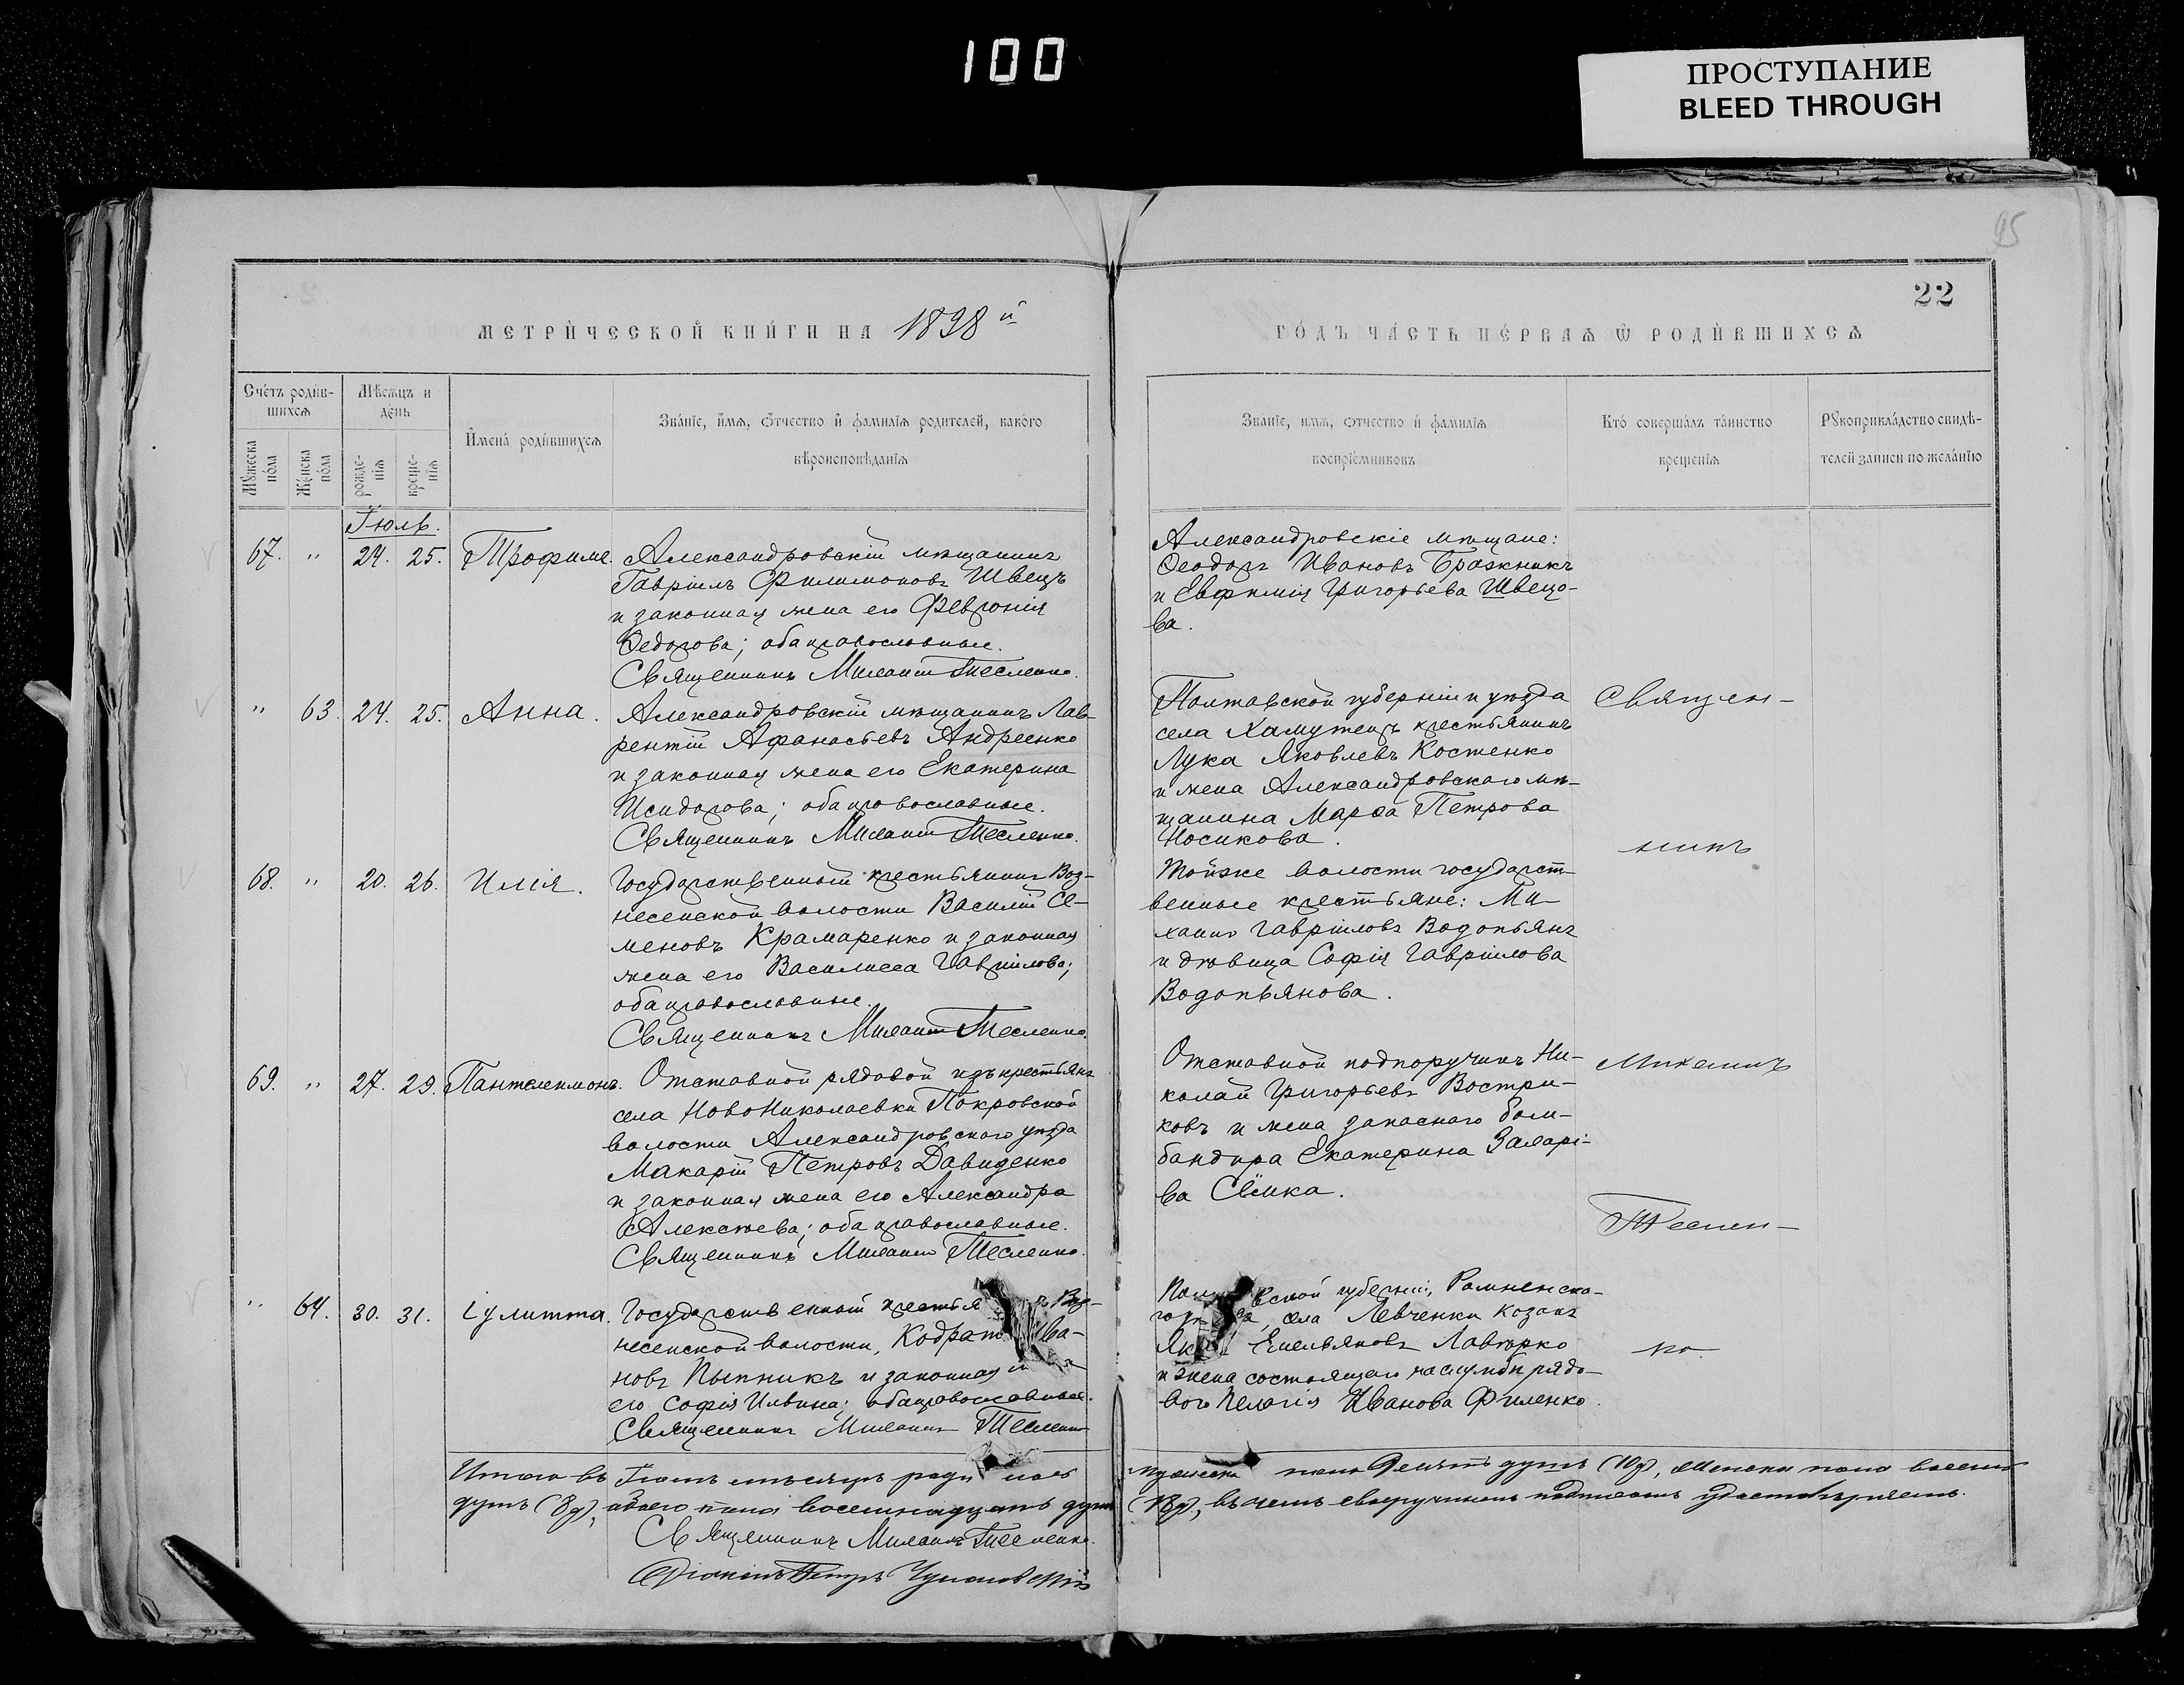 100
ПРОСТУПАНИЕ
BLEED THROUGH
95
22
МЕТРИ́ЧЕСКОЙ КНИ́ГИ НА 1898 й
ГО́ДЪ ЧА́СТЬ ПЕ́РВАѦ Ѡ҆ РОДИ́ВШИХСѦ
Счетъ родив-
шихсѧ
Мꙋжеска
пола
Женска
пола
Мѣсѧцъ и
день
рожде-
нїѧ
креще-
нїѧ
Имена родившихсѧ
Званїе, имѧ, ѻтчество и фамилїѧ родителей, какого
вѣроисповѣданїѧ
Званїе, имѧ, ѻтчество и фамилїѧ
воспрїемниковъ
Кто совершалъ таинство
крещенїѧ
Рꙋкоприкладство свидѣ-
телей записи по желанїю
Іюль.
67. " 24. 25. Трофимъ.
Александровскій мѣщанинъ
Гавріилъ Филимоновъ Швецъ
и законная жена его Февронія
Ѳедорова; оба православные.
Священникъ Михаилъ Тесленко.
Александровскіе мѣщане:
Ѳеодоръ Ивановъ Бражникъ
и Евфимія Григорьева Швецо-
ва.
" 63. 24. 25. Анна.
Александровскій мѣщанинъ Лав-
рентій Афанасьевъ Андреенко
и законная жена его Екатерина
Исидорова; оба православные.
Священникъ Михаилъ Тесленко.
Полтавской губерніи и уѣзда
села Хамутецъ крестьянинъ
Лука Яковлевъ Костенко
и жена Александровского мѣ-
щанина Марѳа Петрова
Носикова.
Священ-
никъ
68. " 20. 26. Илія.
Государственный крестьянинъ Воз-
несенской волости Василій Се-
меновъ Крамаренко и законная
жена его Василисса Гавріилова;
оба православные.
Священникъ Михаилъ Тесленко.
Тойже волости государст-
венные крестьяне: Ми-
хаилъ Гавріиловъ Водопьянъ
и дѣвица Софія Гавріилова
Водопьянова.
69. " 27. 29. Пантелеимонъ.
Отставной рядовой изъ крестьянъ
села НовоНиколаевки Покровской
волости Александровского уѣзда
Макарій Петровъ Давиденко
и законная жена его Александра
Алексѣева; оба православные.
Священникъ Михаилъ Тесленко.
Отставной подпоручикъ Ни-
колай Григорьевъ Востри-
ковъ и жена запасного бом-
бандира Екатерина
ва
Михаилъ
Теслен-
" 64. 30. 31. Іулитта.
Государственный крестья Воз-
несенской волости, Кодрат Ива-
новъ Пыпникъ и законная
его Софія Ильина; оба православные.
Священникъ Михаилъ Тесленко
Пол вской губерніи, Роменска-
го села Левченки козакъ
Як Емельяновъ Лавюрко
и жена состоящаго на службѣ рядо-
вого Пелагія Иванова Филенко.
ко.
Итого въ Іюлѣ мѣсяцѣ роди лось мужеска пола десять душъ (10 д), женска пола восемь
душъ (8 д), обоего пола восемнадцать душъ (18 д), въ чемъ своеручнымъ подписомъ удостовѣряемъ.
Священникъ Михаилъ Тесленко.
Діаконъ Петръ